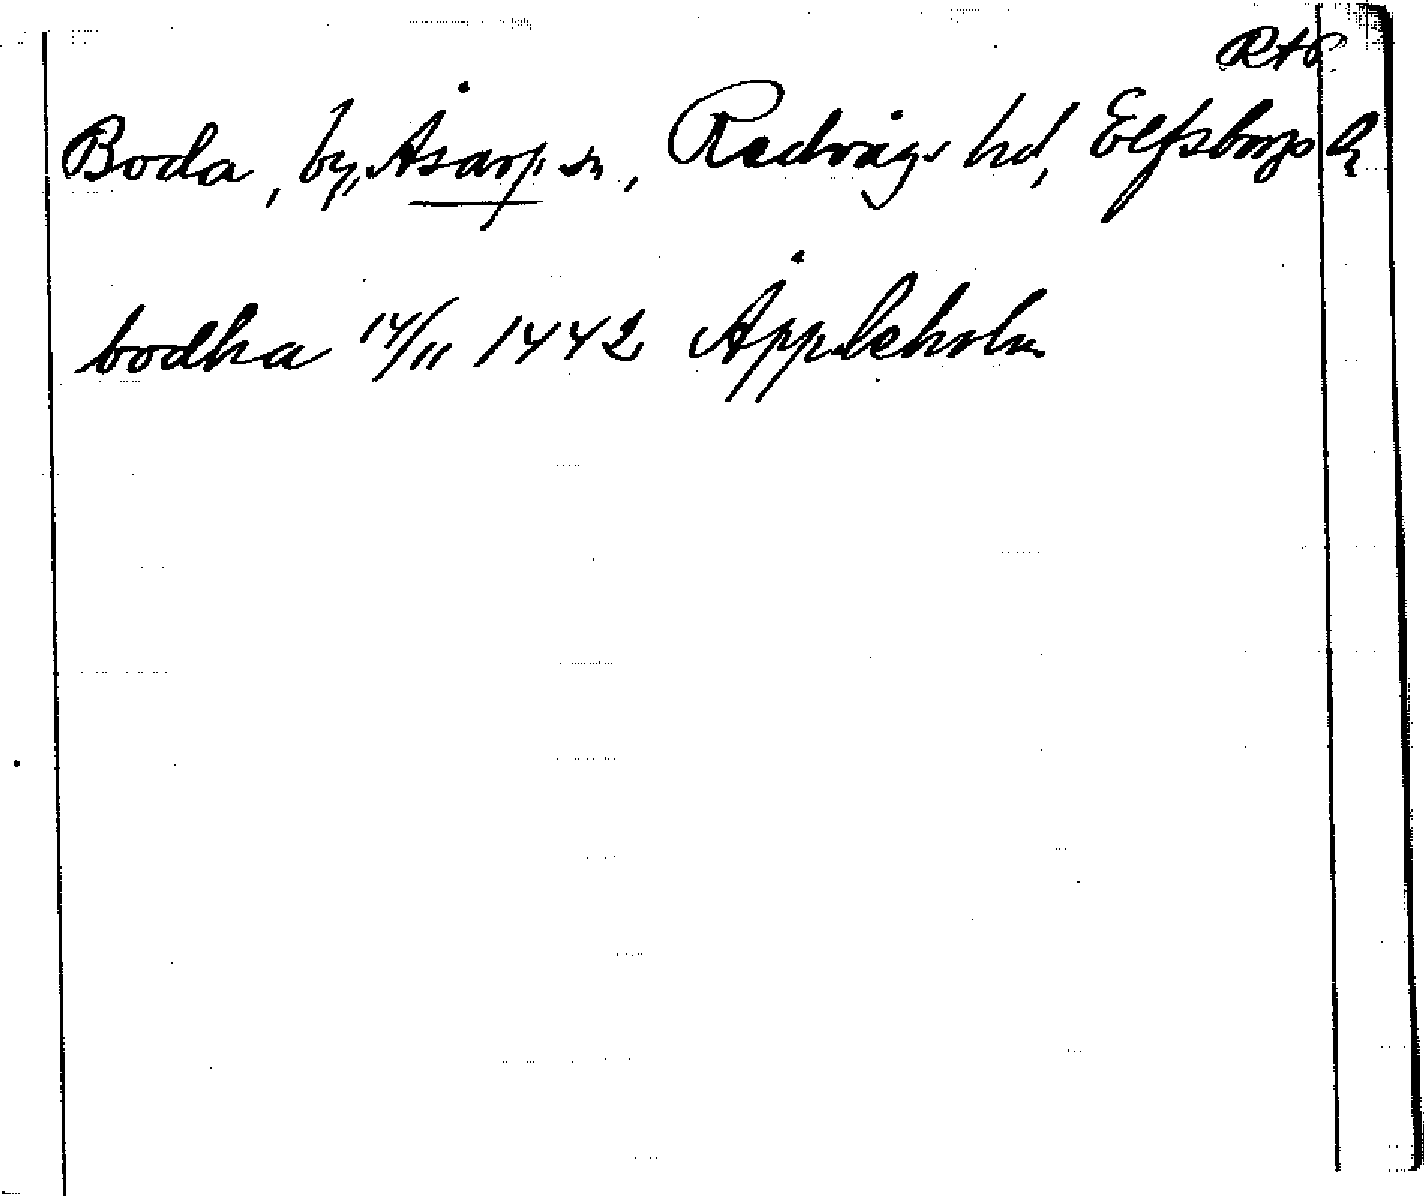 RAP
Boda, by, Åsarp sn, Redvägs hd, Elfsborgs l.
bodha 14/11 1442 Åppleholm